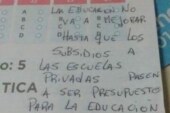 LA EDUCACION NO
VA A MEJORAR
HASTA QUE LOS
SUBSIDIOS A
o: 5 LAS ESCUELAS
PRIVADAS PASEN
TICA A SER PRESUPUESTOS
PARA LA EDUCACIÓN